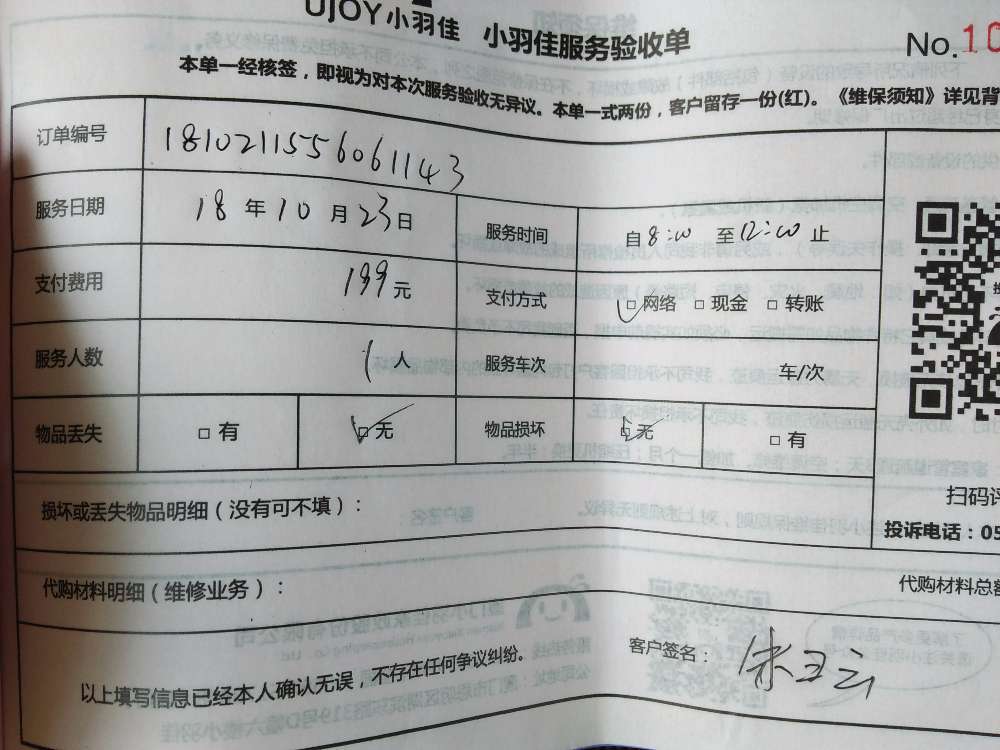 UJOY小羽佳 小羽佳服务验收单 No.10
本单一经核签，即视为对本次服务验收无异议。本单一式两份，客户留存一份(红)。《维保须知》详见背
订单编号 1810211556061143
服务日期 18 年 10 月 23 日 服务时间 自 8:00 至 12:00 止
支付费用 199 元 支付方式 □ 网络 □ 现金 □ 转账
服务人数 1 人 服务车次 车/次
物品丢失 □ 有 □ 无 物品损坏 □ 无 □ 有
扫码评
损坏或丢失物品明细（没有可不填）：
投诉电话：05
代购材料明细（维修业务）： 代购材料总额
以上填写信息已经本人确认无误，不存在任何争议纠纷。 客户签名：